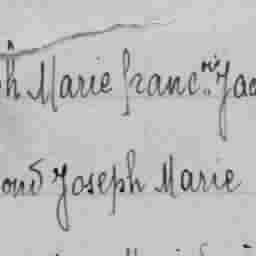 h Marie franc.ois Jac
ond Joseph Marie